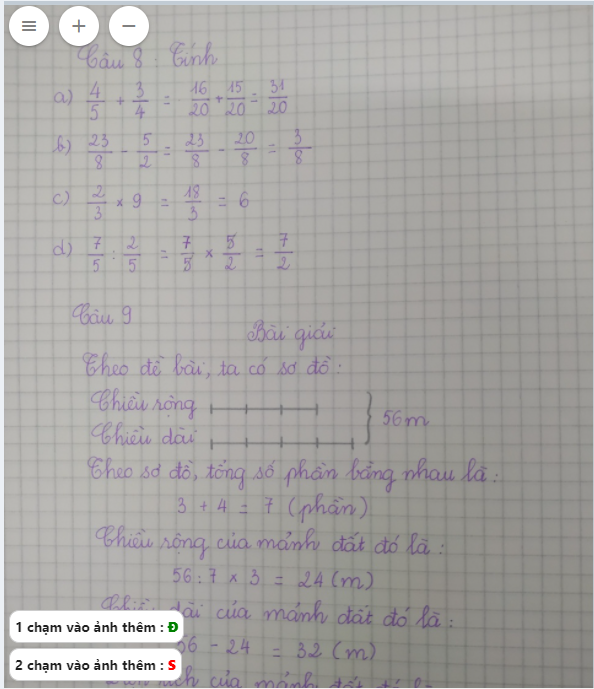 Câu 8 : Tính
a) 4/5 + 3/4 = 16/20 + 15/20 = 31/20
b) 23/8 - 5/2 = 23/8 - 20/8 = 3/8
c) 2/3 × 9 = 18/3 = 6
d) 7/5 : 2/5 = 7/5 × 5/2 = 7/2
Câu 9
Bài giải
Theo đề bài, ta có sơ đồ :
Chiều rộng
56m
Chiều dài
Theo sơ đồ, tổng số phần bằng nhau là :
3 + 4 = 7 (phần)
Chiều rộng của mảnh đất đó là :
56 : 7 × 3 = 24 (m)
Chiều dài của mảnh đất đó là :
1 chạm vào ảnh thêm : Đ
56 - 24 = 32 (m)
2 chạm vào ảnh thêm : S
tích của mảnh đất đó là